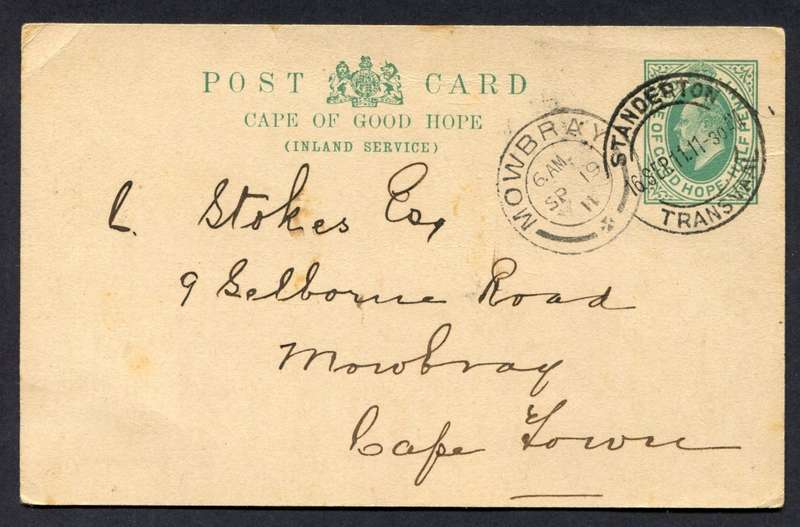 POST CARD
CAPE OF GOOD HOPE
(INLAND SERVICE)
MOWBRAY
6 AM
SP 19
11
STANDERTON
16 SEP 11. 11-30
TRANSVAAL
OF GOOD HOPE HALF PENNY
L. Stokes Esq
9 Selborne Road
Mowbray
Cape Town